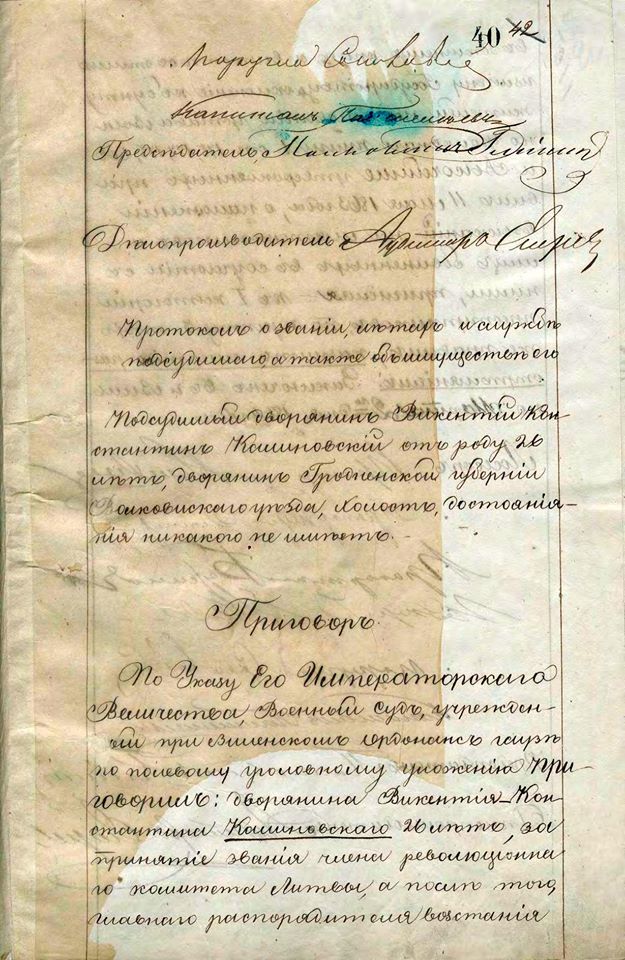 40 42
Поручикъ
Капитанъ
Председатель Полковникъ
Делопроизводитель Аудиторъ
Протоколъ о званіи, летахъ и службе
подсудимаго, а также объ имуществе его
Подсудимый дворянинъ Викентій Кон-
стантинъ Калиновскій отъ роду 26
летъ, дворянинъ Гродненской губерніи
Волковискаго уезда, холостъ, достоянія-
нія никакого не имеетъ.
Приговоръ.
По Указу Его Императорскаго
Величества, Военный Судъ, учрежден-
ный при Виленскомъ Ордонансъ гаузе
по полевому уголовному уложенію при-
говорилъ: дворянина Викентія-Кон-
стантина Калиновскаго 26 летъ, за
принятіе званія члена революціонна-
го комитета Литвы, а после того,
главнаго распорядителя возстанія